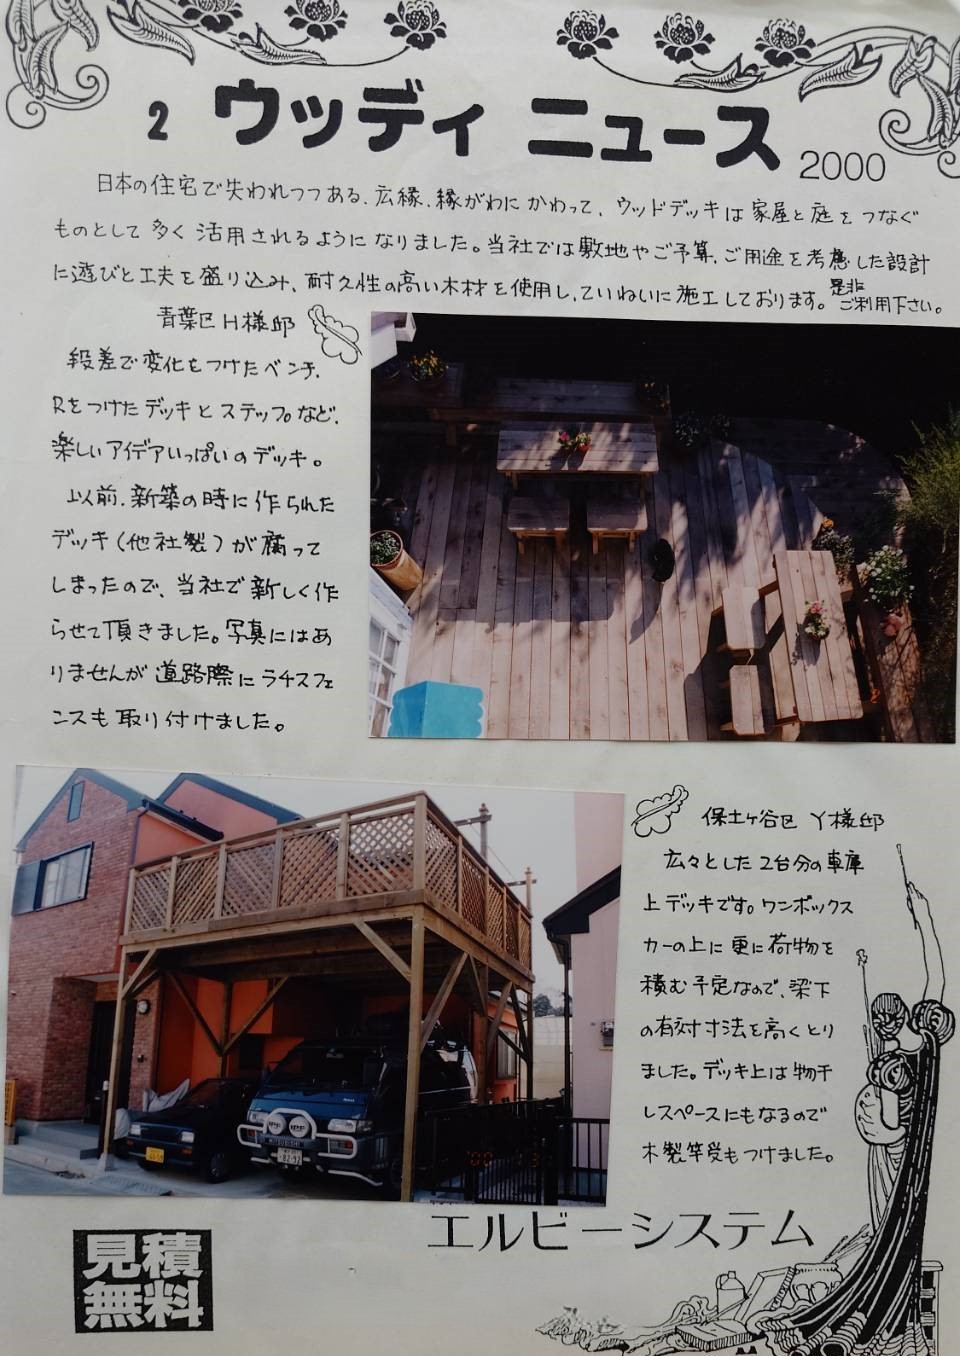 2 ウッディ ニュース 2000
日本の住宅で失われつつある、広縁、縁がわにかわって、ウッドデッキは家屋と庭をつなぐ
ものとして多く活用されるようになりました。当社では敷地やご予算、ご用途を考慮した設計
に遊びと工夫を盛り込み、耐久性の高い木材を使用し、ていねいに施工しております。是非ご利用下さい。
青葉区H様邸
段差で変化をつけたベンチ、
Rをつけたデッキとステップなど、
楽しいアイデアいっぱいのデッキ。
以前、新築の時に作られた
デッキ(他社製)が腐って
しまったので、当社で新しく作
らせて頂きました。写真にはあ
りませんが道路際にラチスフェ
ンスも取り付けました。
保土ヶ谷区 Y様邸
広々とした2台分の車庫
上デッキです。ワンボックス
カーの上に更に荷物を
積む予定なので、梁下
の有効寸法を高くとり
ました。デッキ上は物干
しスペースにもなるので
木製竿受もつけました。
エルビーシステム
見積
無料